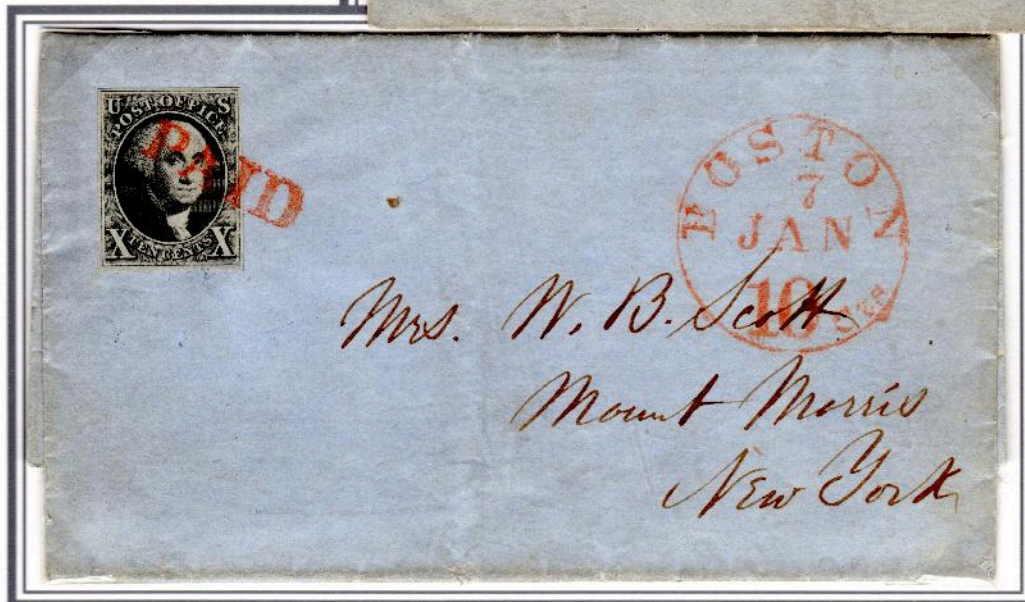 U S
POST OFFICE
X TEN CENTS X
PAID
BOSTON
7
JAN
10 cts
Mrs. W. B. Scott
Mount Morris
New York